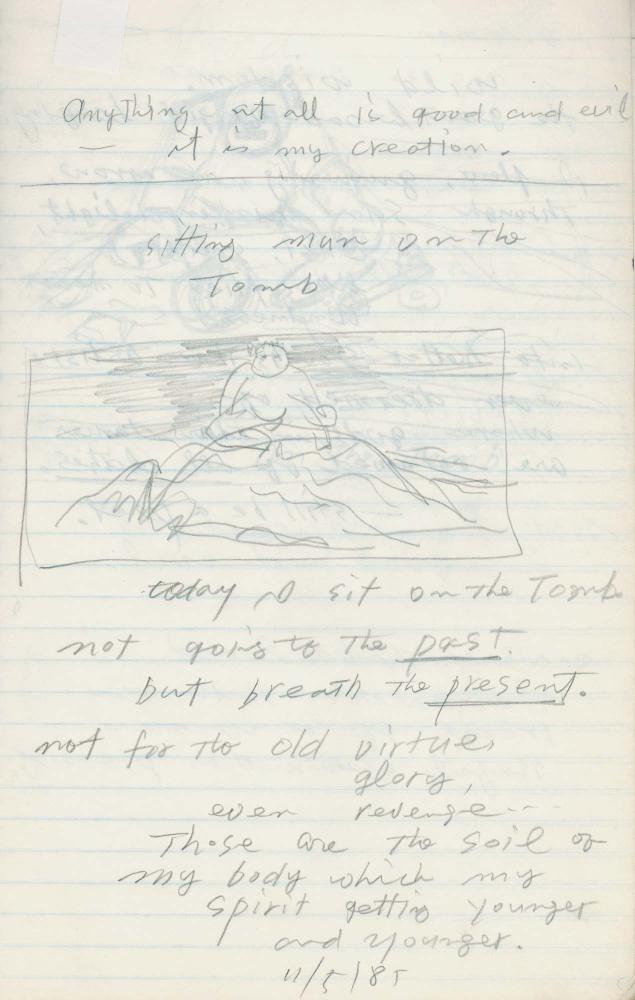 Anything at all is good and evil
— it is my creation.
sitting man on the
Tomb
today I sit on the Tomb
not going to the past.
but breath the present.
not for the old virtue,
glory,
even revenge---
Those are the soil of
my body which my
spirit getting younger
and younger.
11/5/85